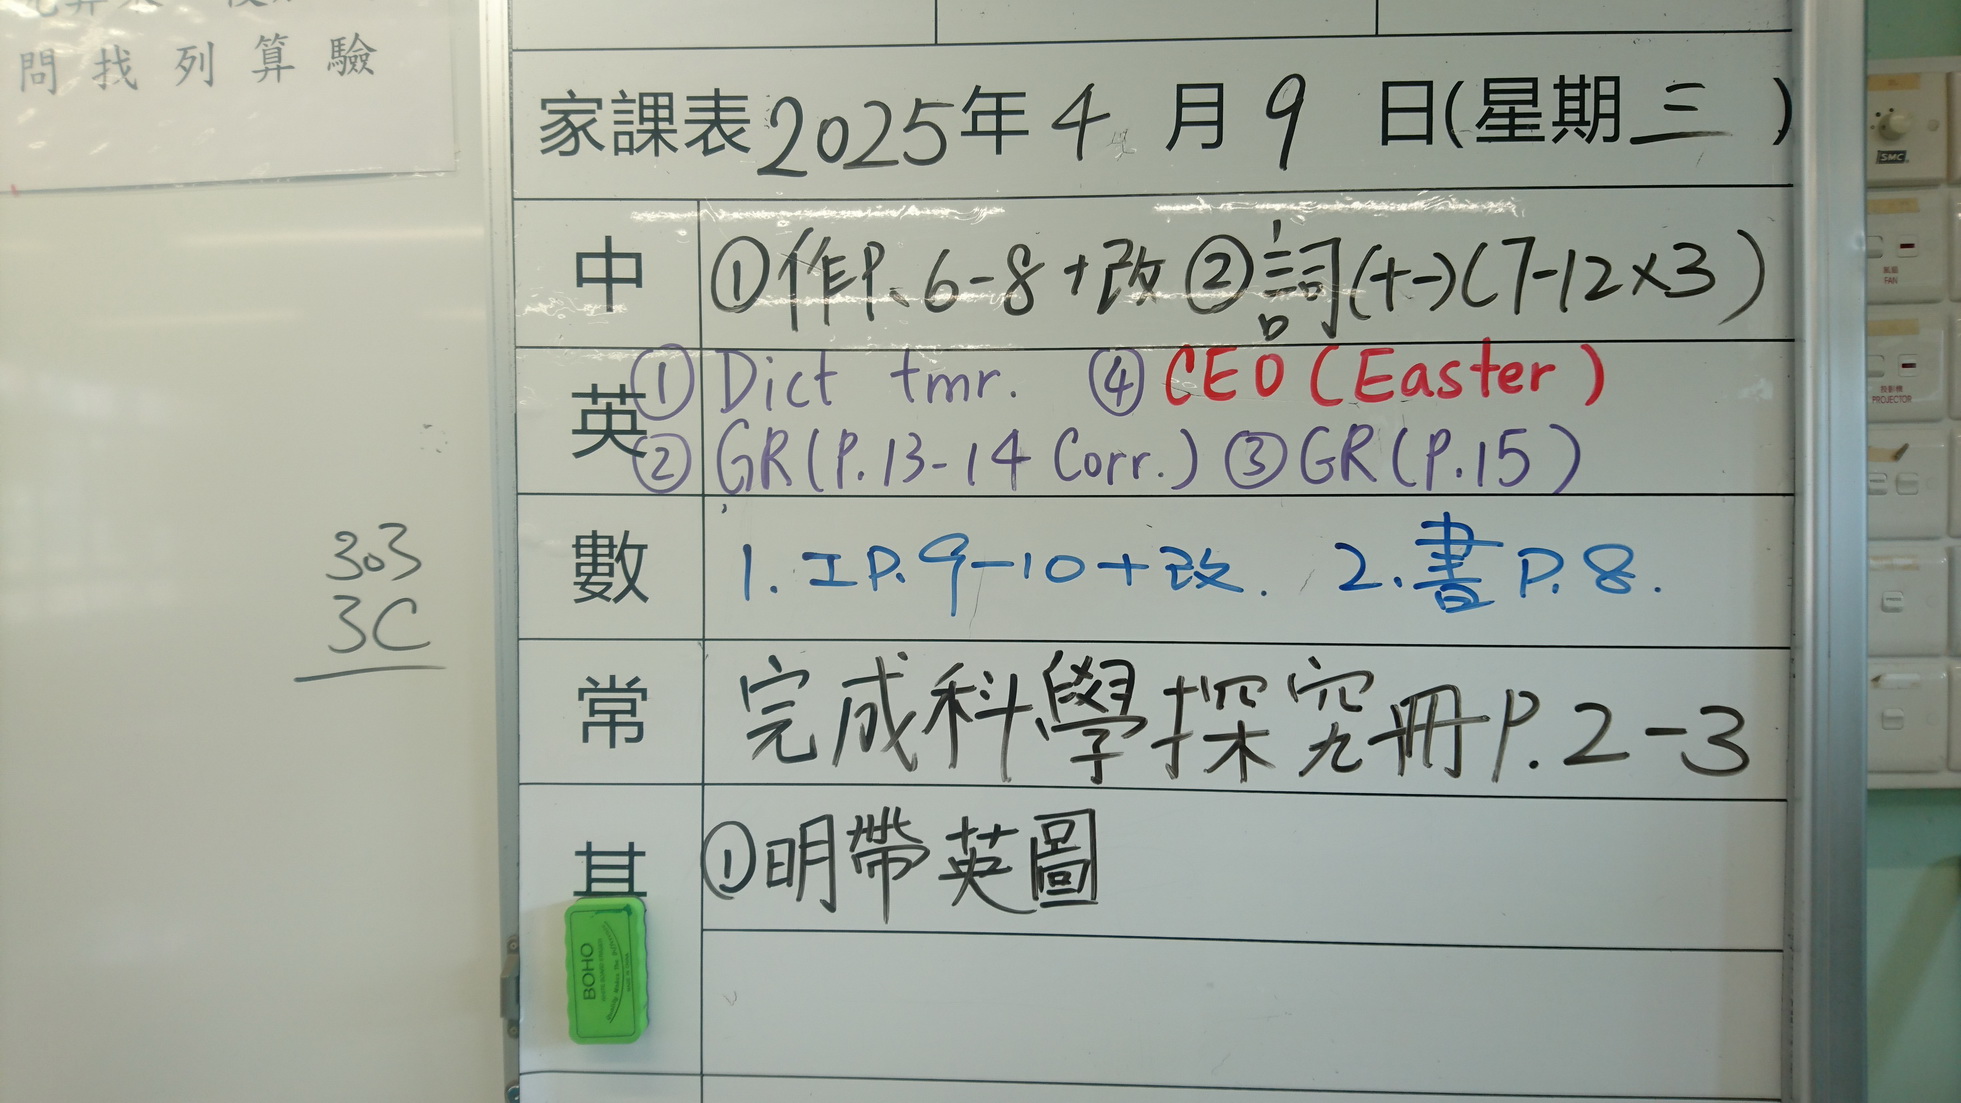 問找列算驗
家課表2025年4月9日(星期三)
中 ①作P.6-8+改 ②詞(十一)(7-12×3)
英 ①Dict tmr. ④CEO (Easter)
②GR(P.13-14 Corr.) ③GR(P.15)
數 1. 工P.9-10+改. 2. 書P.8.
常 完成科學探究冊P.2-3
①明帶英圖
303
3C
BOHO
SMC
FAN
投影機
PROJECTOR